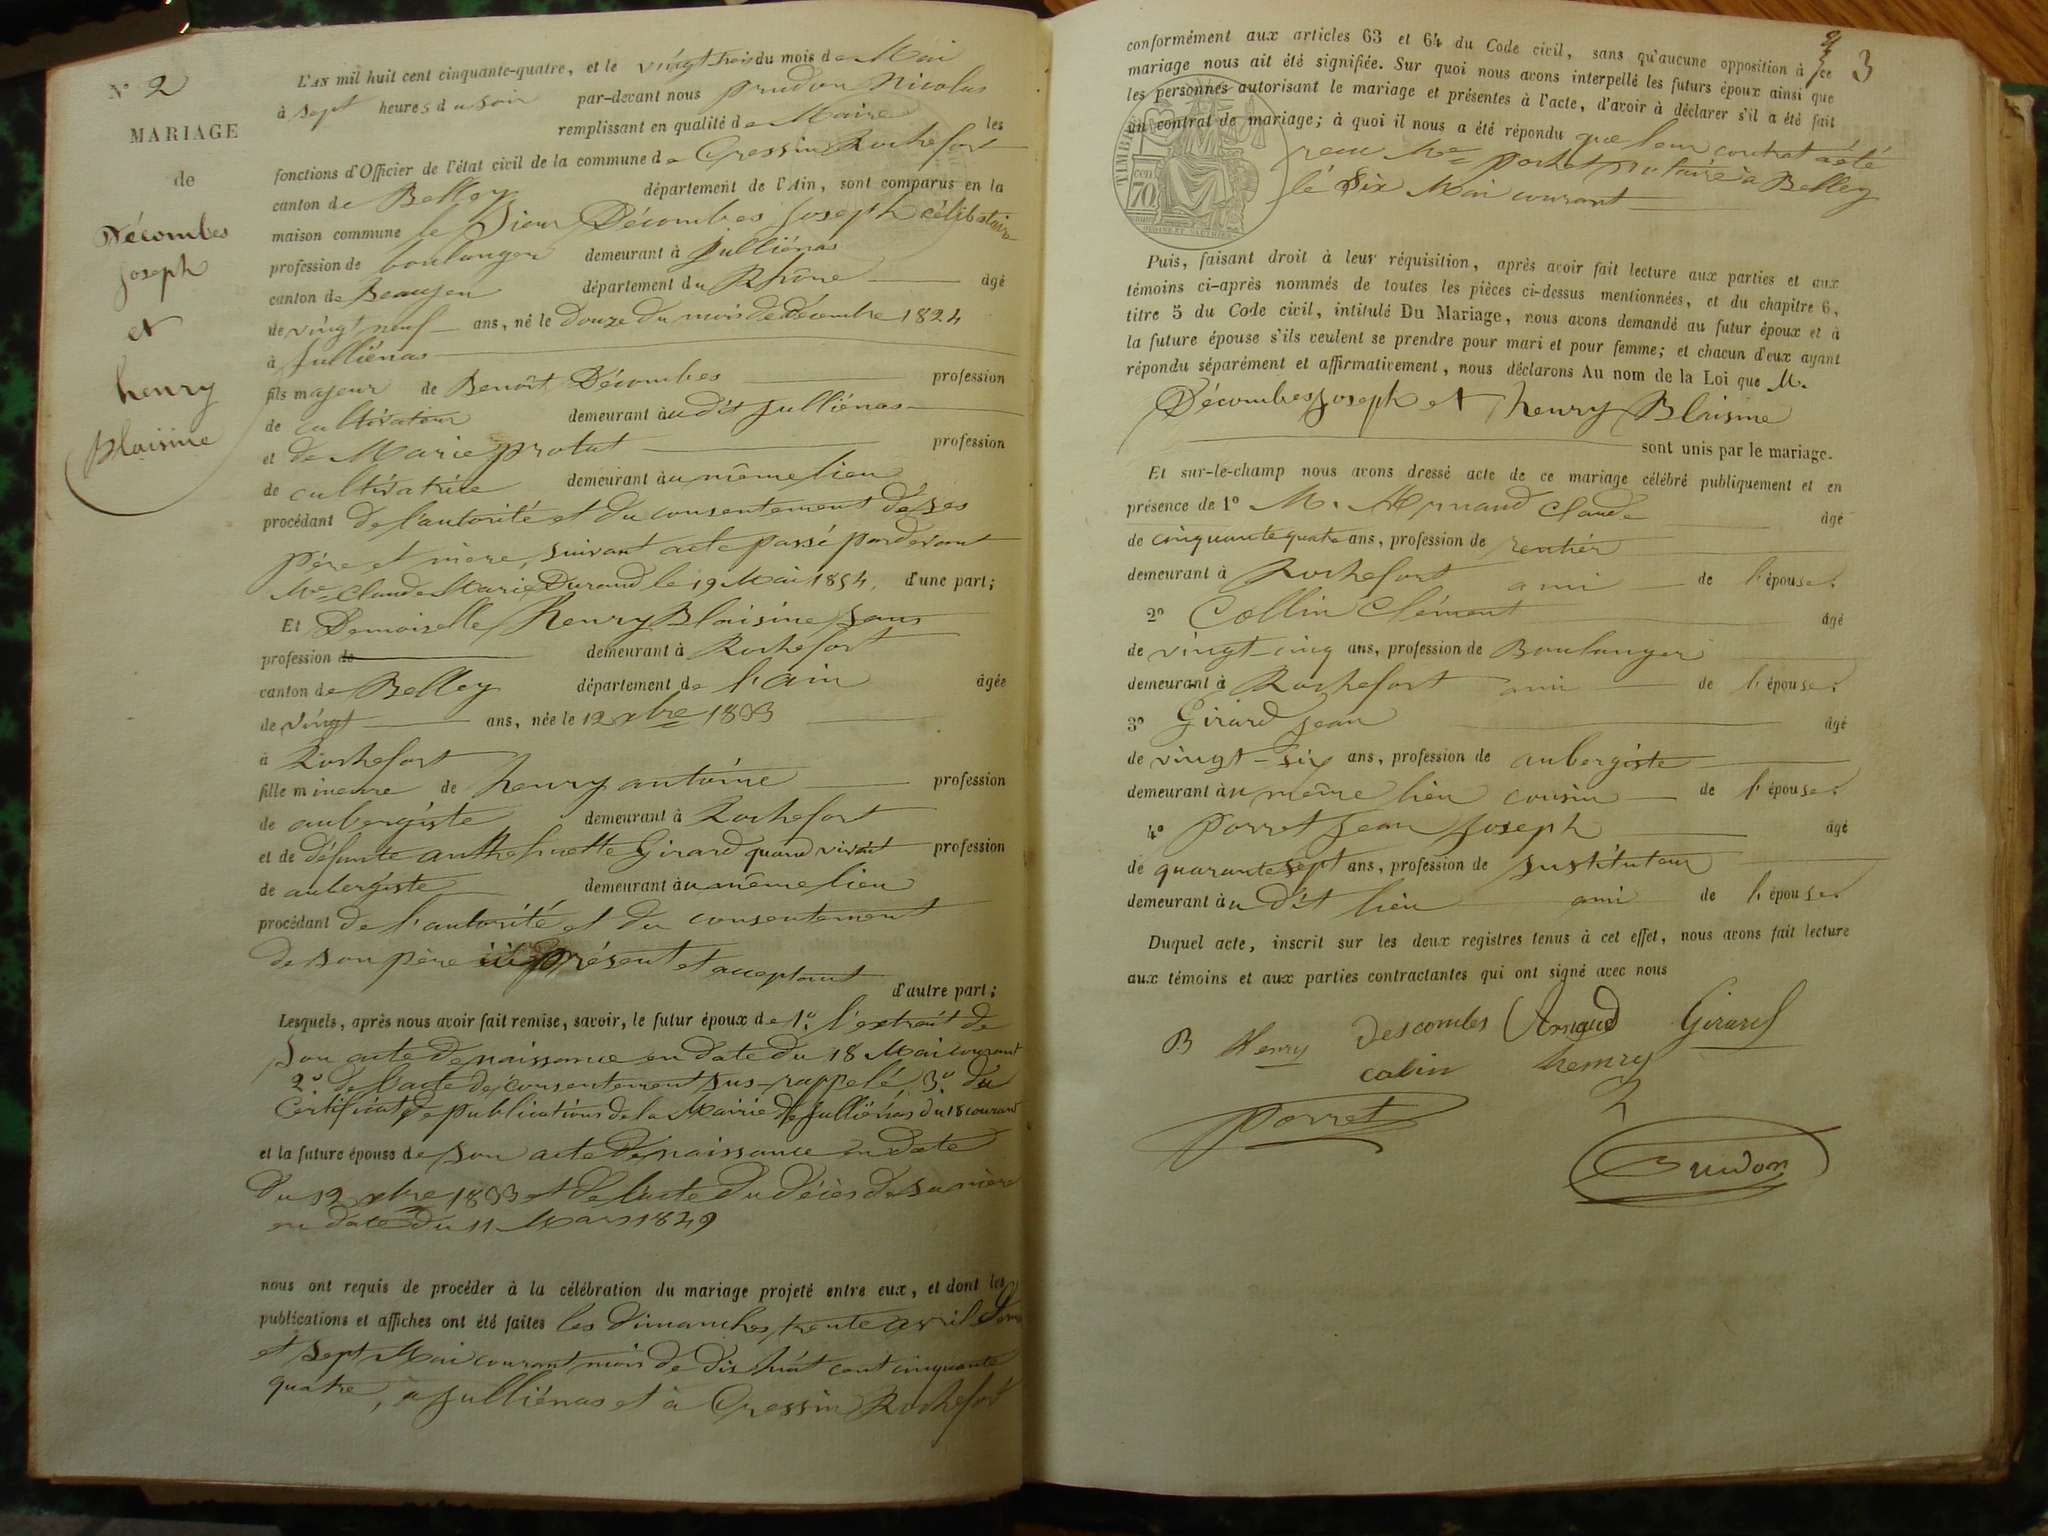 N° 2
MARIAGE
de
Décombes
Joseph
et
henry
Blaisine
L'AN mil huit cent cinquante-quatre, et le vingt trois du mois de Mai
à sept heures du soir par-devant nous prudon Nicolas
remplissant en qualité de Maire les
fonctions d'Officier de l'état civil de la commune de Cressin Rochefort
canton de Belley département de l'Ain, sont comparus en la
maison commune le Sieur Décombes Joseph célibataire
profession de boulanger demeurant à Julliénas
canton de Beaujeu département du Rhône âgé
de vingt neuf ans, né le douze du mois de décembre 1824
à Julliénas
fils majeur de Benoît Décombes profession
de cultivateur demeurant audit Julliénas
et de Marie protat profession
de cultivatrice demeurant au même lieu
procédant de l'autorité et du consentement de ses
père et mère, suivant acte passé pardevant
Me Claude Marie Durand le 19 Mai 1854, d'une part;
Et Demoiselle henry Blaisine sans
profession de demeurant à Rochefort
canton de Belley département de l'ain âgée
de vingt ans, née le 12 xbre 1833
à Rochefort
fille mineure de henry antoine profession
de aubergiste demeurant à Rochefort
et de défunte anthelmette Girard quand vivait profession
de aubergiste demeurant au même lieu
procédant de l'autorité et du consentement
de son père ici présent et acceptant
d'autre part;
Lesquels, après nous avoir fait remise, savoir, le futur époux de 1° l'extrait de
son acte de naissance en date du 18 Mai courant
2° de l'acte de consentement sus-rappelé, 3° du
Certificat de publications de la Mairie de Julliénas du 18 courant
et la future épouse de son acte de naissance en date
du 12 xbre 1833 et de l'acte du décès de sa mère
en date du 11 Mars 1849
nous ont requis de procéder à la célébration du mariage projeté entre eux, et dont les
publications et affiches ont été faites les dimanches, trente avril
et sept Mai courant mois de dix huit cent cinquante
quatre, a Julliénas et à Cressin Rochefort
3
conformément aux articles 63 et 64 du Code civil, sans qu'aucune opposition à ce
mariage nous ait été signifiée. Sur quoi nous avons interpellé les futurs époux ainsi que
les personnes autorisant le mariage et présentes à l'acte, d'avoir à déclarer s'il a été fait
un contrat de mariage; à quoi il nous a été répondu que leur contrat a été
recu Me pochet notaire à Belley
le Six Mai courant
TIMBRE
cen 70
Puis, faisant droit à leur réquisition, après avoir fait lecture aux parties et aux
témoins ci-après nommés de toutes les pièces ci-dessus mentionnées, et du chapitre 6,
titre 5 du Code civil, intitulé Du Mariage, nous avons demandé au futur époux et à
la future épouse s'ils veulent se prendre pour mari et pour femme; et chacun d'eux ayant
répondu séparément et affirmativement, nous déclarons Au nom de la Loi que M.
Décombes Joseph et henry Blaisine
sont unis par le mariage.
Et sur-le-champ nous avons dressé acte de ce mariage célébré publiquement et en
présence de 1° M. Arnaud Claude âgé
de cinquante quatre ans, profession de rentier
demeurant à Rochefort ami de l'épouse.
2° Collin Clément âgé
de vingt-cinq ans, profession de Boulanger
demeurant à Rochefort ami de l'épouse.
3° Girard Jean âgé
de vingt-six ans, profession de aubergiste
demeurant au même lieu cousin de l'épouse.
4° Porret Jean Joseph âgé
de quarante sept ans, profession de Instituteur
demeurant au dit lieu ami de l'épouse.
Duquel acte, inscrit sur les deux registres tenus à cet effet, nous avons fait lecture
aux témoins et aux parties contractantes qui ont signé avec nous
B Henry Descombes Arnaud Girard
colin henry
Porret
Prudon